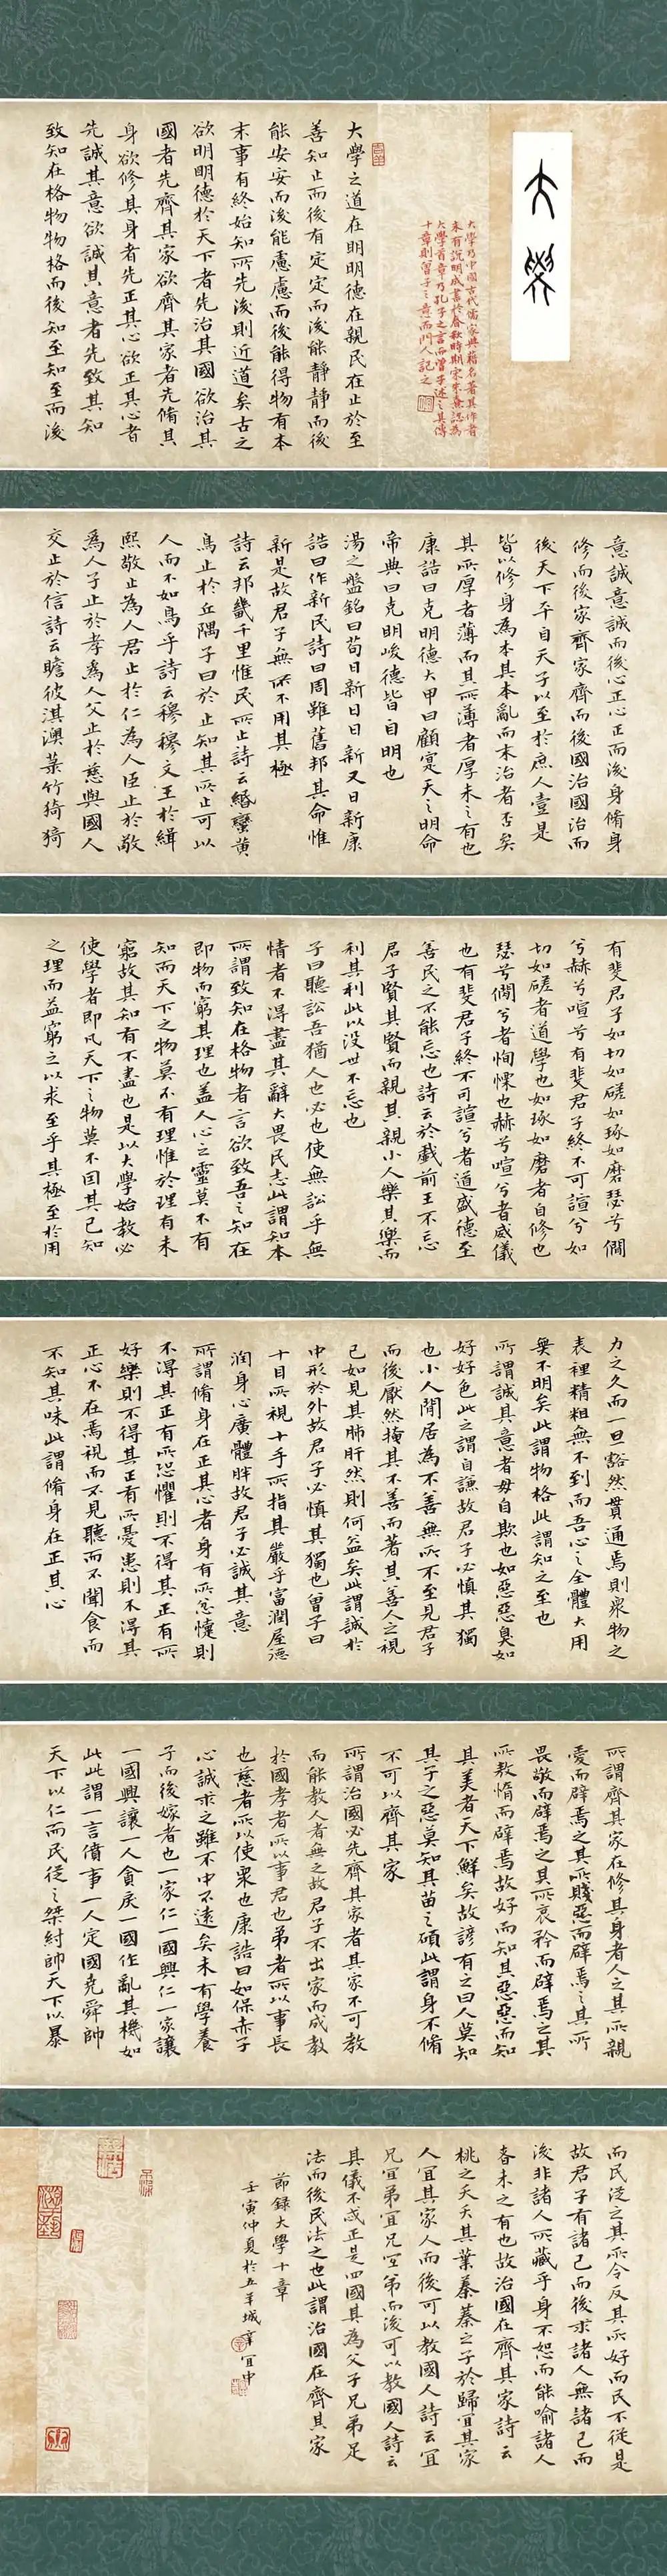 大學
大學乃中國古代儒家典籍名著其作者
未有說明成書於春秋時期宋朱熹認為
大學首章乃孔子之言而曾子述之其傳
十章則曾子之意而門人記之
大學之道在明明德在親民在止於至
善知止而後有定定而後能靜靜而後
能安安而後能慮慮而後能得物有本
末事有終始知所先後則近道矣古之
欲明明德於天下者先治其國欲治其
國者先齊其家欲齊其家者先脩其
身欲修其身者先正其心欲正其心者
先誠其意欲誠其意者先致其知
致知在格物物格而後知至知至而後
意誠意誠而後心正心正而後身脩身
修而後家齊家齊而後國治國治而
後天下平自天子以至於庶人壹是
皆以修身為本其本亂而末治者否矣
其所厚者薄而其所薄者厚未之有也
康誥曰克明德大甲曰顧諟天之明命
帝典曰克明峻德皆自明也
湯之盤銘曰苟日新日日新又日新康
誥曰作新民詩曰周雖舊邦其命惟
新是故君子無所不用其極
詩云邦畿千里惟民所止詩云緡蠻黃
鳥止於丘隅子曰於止知其所止可以
人而不如鳥乎詩云穆穆文王於緝
熙敬止為人君止於仁為人臣止於敬
為人子止於孝為人父止於慈與國人
交止於信詩云瞻彼淇澳菉竹猗猗
有斐君子如切如磋如琢如磨瑟兮僩
兮赫兮喧兮有斐君子終不可諠兮如
切如磋者道學也如琢如磨者自修也
瑟兮僩兮者恂慄也赫兮喧兮者威儀
也有斐君子終不可諠兮者道盛德至
善民之不能忘也詩云於戲前王不忘
君子賢其賢而親其親小人樂其樂而
利其利此以沒世不忘也
子曰聽訟吾猶人也必也使無訟乎無
情者不得盡其辭大畏民志此謂知本
所謂致知在格物者言欲致吾之知在
即物而窮其理也蓋人心之靈莫不有
知而天下之物莫不有理惟於理有未
窮故其知有不盡也是以大學始教必
使學者即凡天下之物莫不因其已知
之理而益窮之以求至乎其極至於用
力之久而一旦豁然貫通焉則眾物之
表裡精粗無不到而吾心之全體大用
無不明矣此謂物格此謂知之至也
所謂誠其意者毋自欺也如惡惡臭如
好好色此之謂自謙故君子必慎其獨
也小人閒居為不善無所不至見君子
而後厭然揜其不善而著其善人之視
己如見其肺肝然則何益矣此謂誠於
中形於外故君子必慎其獨也曾子曰
十目所視十手所指其嚴乎富潤屋德
潤身心廣體胖故君子必誠其意
所謂脩身在正其心者身有所忿懥則
不得其正有所恐懼則不得其正有所
好樂則不得其正有所憂患則不得其
正心不在焉視而不見聽而不聞食而
不知其味此謂脩身在正其心
所謂齊其家在修其身者人之其所親
愛而辟焉之其所賤惡而辟焉之其所
畏敬而辟焉之其所哀矜而辟焉之其
所敖惰而辟焉故好而知其惡惡而知
其美者天下鮮矣故諺有之曰人莫知
其子之惡莫知其苗之碩此謂身不脩
不可以齊其家
所謂治國必先齊其家者其家不可教
而能教人者無之故君子不出家而成教
於國孝者所以事君也弟者所以事長
也慈者所以使眾也康誥曰如保赤子
心誠求之雖不中不遠矣未有學養
子而後嫁者也一家仁一國興仁一家讓
一國興讓一人貪戾一國作亂其機如
此此謂一言僨事一人定國堯舜帥
天下以仁而民從之桀紂帥天下以暴
而民從之其所令反其所好而民不從是
故君子有諸己而後求諸人無諸己而
後非諸人所藏乎身不恕而能喻諸人
者未之有也故治國在齊其家詩云
桃之夭夭其葉蓁蓁之子於歸宜其家
人宜其家人而後可以教國人詩云宜
兄宜弟宜兄宜弟而後可以教國人詩云
其儀不忒正是四國其為父子兄弟足
法而後民法之也此謂治國在齊其家
節錄大學十章
壬寅仲夏於五羊城辛宜中